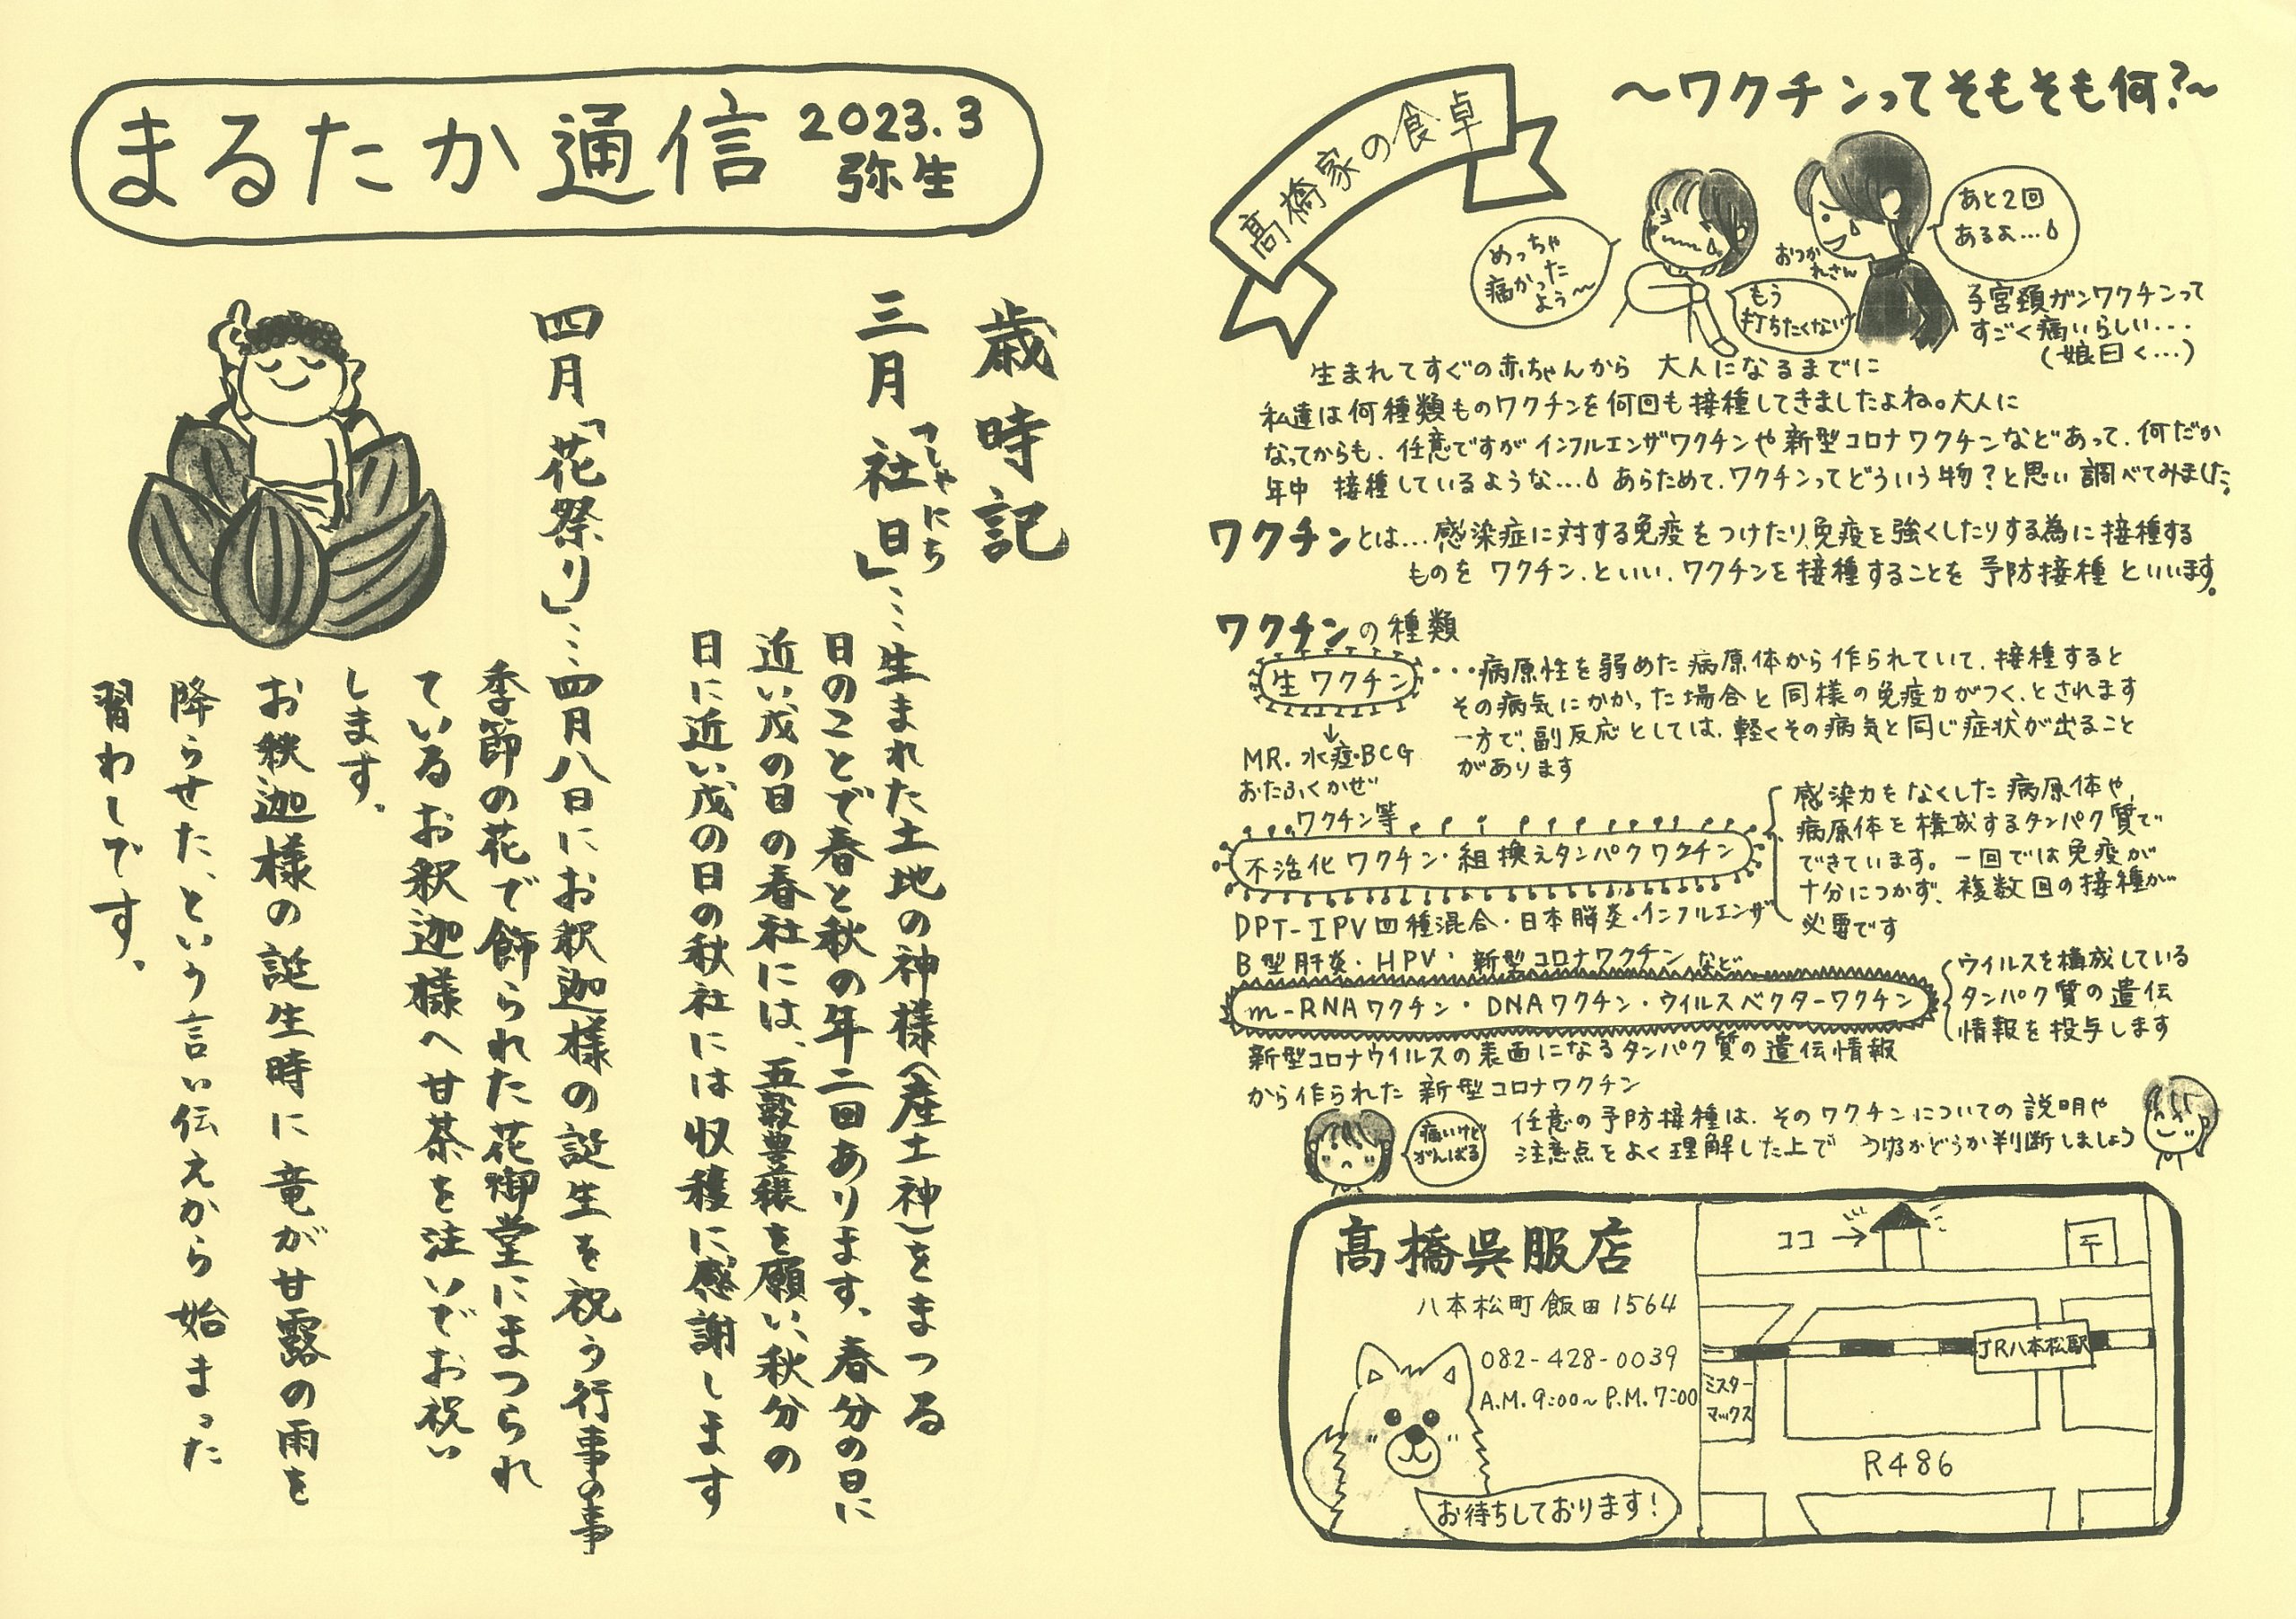 まるたか通信 2023.3
弥生
歳時記
三月「社日」…生まれた土地の神様(産土神)をまつる
しゃにち
日のことで春と秋の年二回あります。春分の日に
近い戊の日の春社には、五穀豊穣を願い、秋分の
日に近い戊の日の秋社には収穫に感謝します
四月「花祭り」…四月八日にお釈迦様の誕生を祝う行事の事
季節の花で飾られた花御堂にまつられ
ているお釈迦様へ甘茶を注いでお祝い
します。
お釈迦様の誕生時に竜が甘露の雨を
降らせた、という言い伝えから始まった
習わしです。
高橋家の食卓
〜ワクチンってそもそも何?〜
めっちゃ
痛かった
よう〜
もう
打ちたくない
おつか
れさん
あと2回
あるよ…
子宮頚ガンワクチンって
すごく痛いらしい…
(娘曰く…)
生まれてすぐの赤ちゃんから 大人になるまでに
私達は何種類ものワクチンを何回も接種してきましたよね。大人に
なってからも、任意ですがインフルエンザワクチンや新型コロナワクチンなどあって、何だか
年中 接種しているような… あらためて、ワクチンってどういう物?と思い調べてみました。
ワクチンとは…感染症に対する免疫をつけたり、免疫を強くしたりする為に接種する
ものを ワクチン、といい、ワクチンを接種することを 予防接種 といいます。
ワクチンの種類
生ワクチン…病原性を弱めた病原体から作られていて、接種すると
その病気にかかった場合と同様の免疫力がつく、とされます
一方で、副反応としては、軽くその病気と同じ症状が出ること
があります
↓
MR. 水痘・BCG
おたふくかぜ
ワクチン等
不活化ワクチン・組換えタンパクワクチン
感染力をなくした病原体や、
病原体を構成するタンパク質で
できています。一回では免疫が
十分につかず、複数回の接種が
必要です
DPT-IPV四種混合・日本脳炎・インフルエンザ
B型肝炎・HPV・新型コロナワクチン など
m-RNAワクチン・DNAワクチン・ウイルスベクターワクチン
ウイルスを構成している
タンパク質の遺伝
情報を投与します
新型コロナウイルスの表面になるタンパク質の遺伝情報
から作られた 新型コロナワクチン
痛いけど
がんばる
任意の予防接種は、そのワクチンについての説明や
注意点をよく理解した上で うけるかどうか判断しましょう
高橋呉服店
八本松町飯田1564
082-428-0039
A.M.9:00〜P.M.7:00
お待ちしております!
ココ→
〒
JR八本松駅
ミスター
マックス
R486